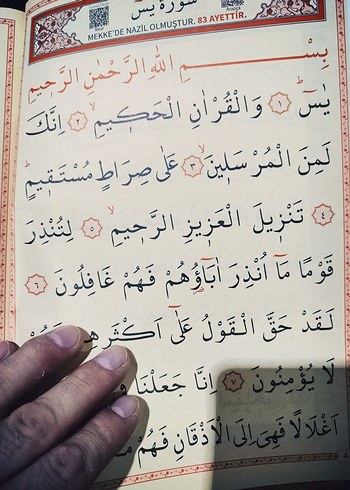 سورة يس
MEKKE'DE NAZİL OLMUŞTUR. 83 AYETTİR.
بِسْمِ اللّٰهِ الرَّحْمٰنِ الرَّحِيمِ
يٰسٓ ﴿١﴾ وَالْقُرْاٰنِ الْحَكِيمِۙ ﴿٢﴾ اِنَّكَ
لَمِنَ الْمُرْسَلِينَۙ ﴿٣﴾ عَلٰى صِرَاطٍ مُسْتَقِيمٍۜ
﴿٤﴾ تَنْزِيلَ الْعَزِيزِ الرَّحِيمِۙ ﴿٥﴾ لِتُنْذِرَ
قَوْمًا مَٓا اُنْذِرَ اٰبَٓاؤُ۬هُمْ فَهُمْ غَافِلُونَ ﴿٦﴾
لَقَدْ حَقَّ الْقَوْلُ عَلٰٓى اَكْثَرِهِ
لَا يُؤْمِنُونَ ﴿٧﴾ اِنَّا جَعَلْنَا
اَغْلَالًا فَهِيَ اِلَى الْاَذْقَانِ فَهُمْ